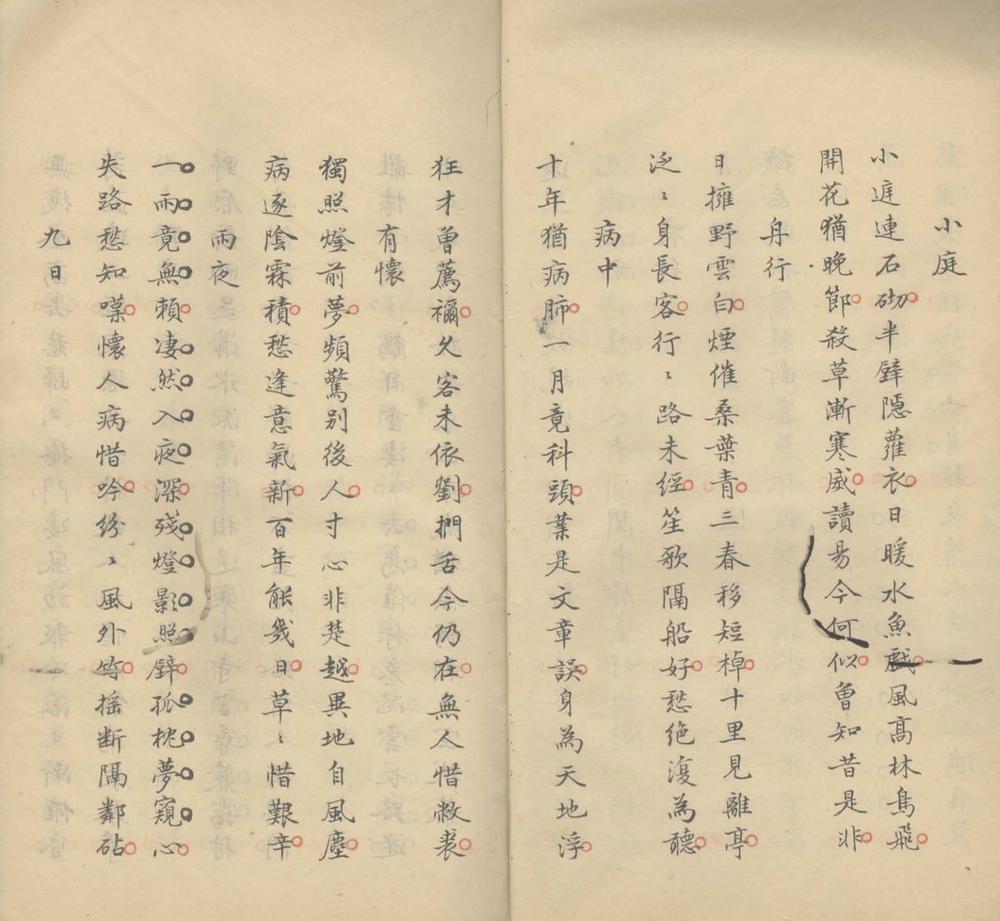 小庭
小庭連石砌半壁隱蘿衣日暖水魚戲風高林鳥飛
開花猶晚節殺草漸寒威讀易今何似曾知昔是非
舟行
日擁野雲白煙催桑葉青三春移短棹十里見離亭
泛〻身長客行〻路未經笙歌隔船好愁絕復為聽
病中
十年猶病肺一月竟科頭葉是文章誤身為天地浮
狂才曾薦禰久客未依劉捫舌今仍在無人惜敝裘
有懷
獨照燈前夢頻驚別後人寸心非楚越異地自風塵
病逐陰霖積愁逢意氣新百年能幾日草〻惜艱辛
雨夜
一雨竟無頼凄然入夜深殘燈影照壁孤枕夢窺心
失路愁知喋懷人病惜吟紛〻風外竹搖斷隔鄰砧
九日